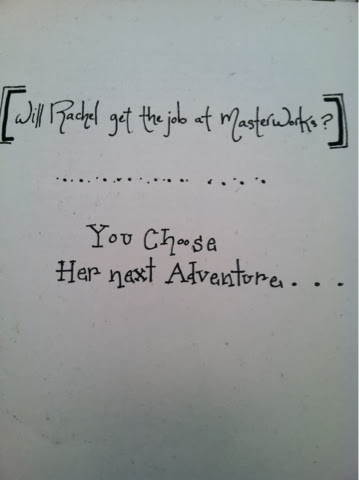 [Will Rachel get the job at MasterWorks?]
You Choose
Her next Adventure...